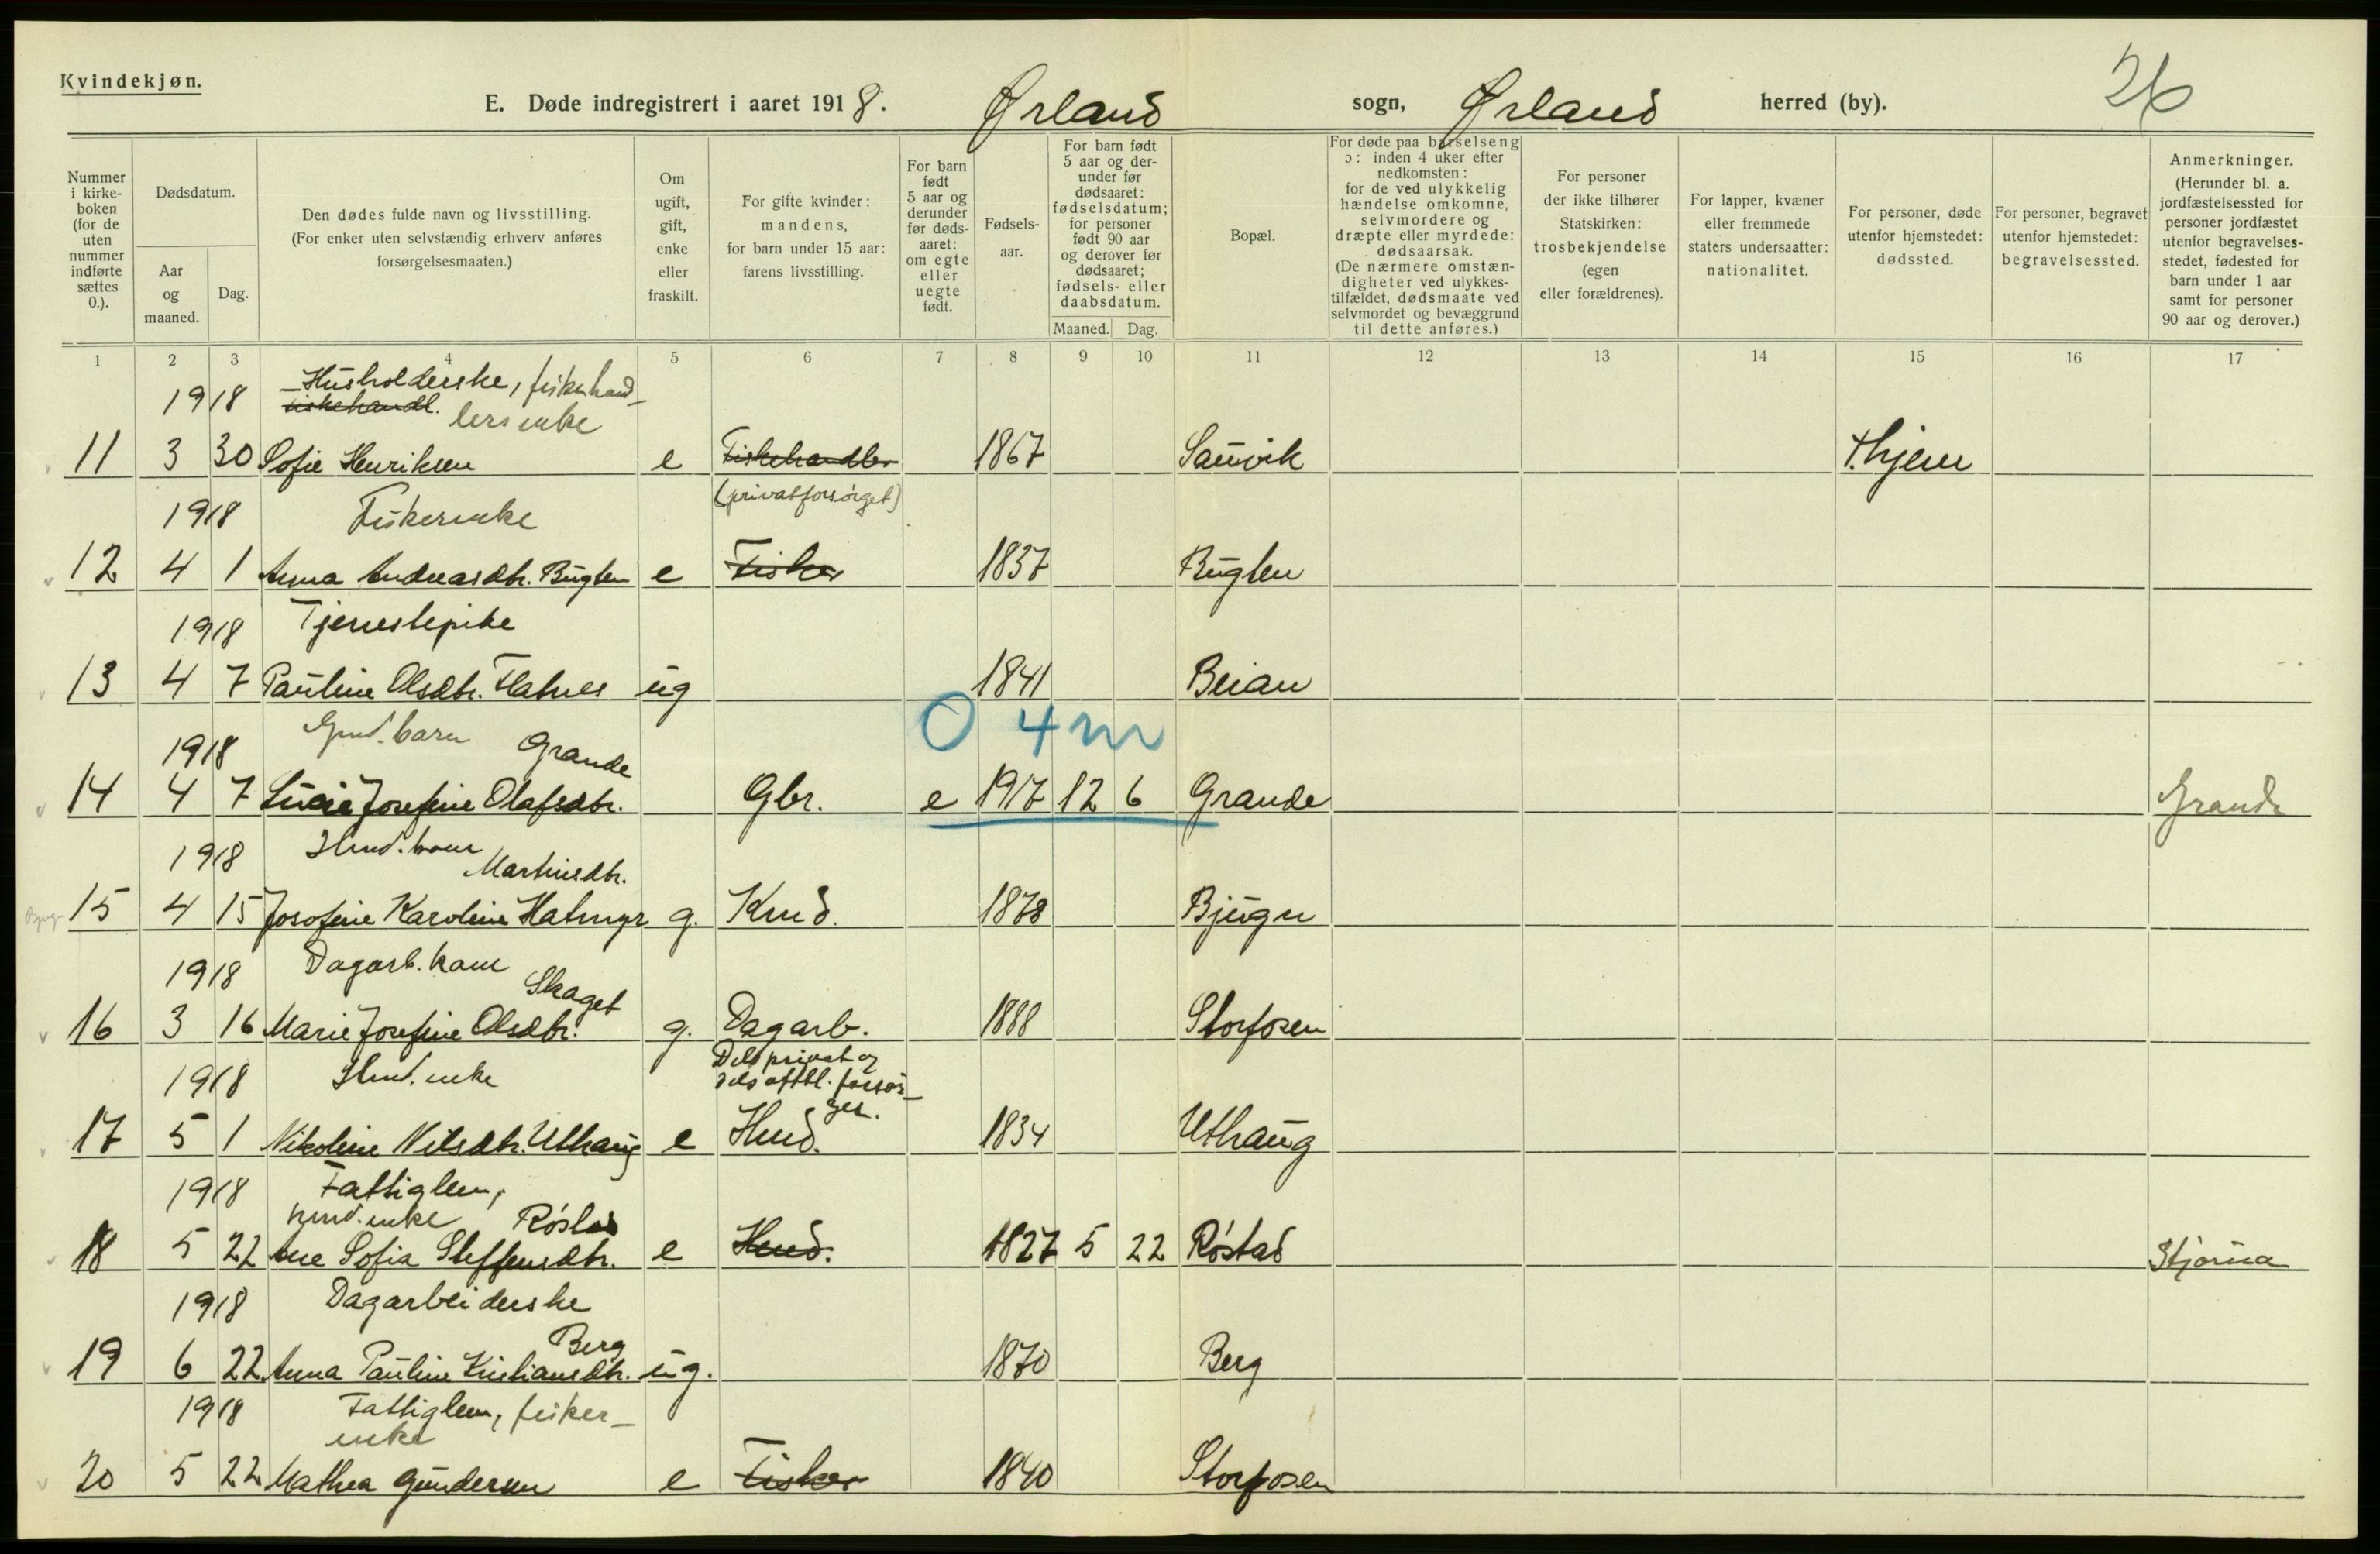 Kvindekjøn.
E. Døde indregistrert i aaret 1918. Ørland sogn, Ørland herred (by). 26
Nummer i kirke-boken (for de uten nummer indførte sættes 0.).
Dødsdatum.
Aar og maaned.
Dag.
Den dødes fulde navn og livsstilling.
(For enker uten selvstændig erhverv anføres forsørgelsesmaaten.)
Om ugift, gift, enke eller fraskilt.
For gifte kvinder: mandens, for barn under 15 aar: farens livsstilling.
For barn født 5 aar og derunder før døds-aaret: om egte eller uegte født.
Fødsels-aar.
For barn født 5 aar og der-under før dødsaaret: fødselsdatum; for personer født 90 aar og derover før dødsaaret; fødsels- eller daabsdatum.
Maaned. Dag.
Bopæl.
For døde paa barselseng ɔ: inden 4 uker efter nedkomsten: for de ved ulykkelig hændelse omkomne, selvmordere og dræpte eller myrdede: dødsaarsak. (De nærmere omstæn-digheter ved ulykkes-tilfældet, dødsmaate ved selvmordet og bevæggrund til dette anføres.)
For personer der ikke tilhører Statskirken: trosbekjendelse (egen eller forældrenes).
For lapper, kvæner eller fremmede staters undersaatter: nationalitet.
For personer, døde utenfor hjemstedet: dødssted.
For personer, begravet utenfor hjemstedet: begravelsessted.
Anmerkninger. (Herunder bl. a. jordfæstelsessted for personer jordfæstet utenfor begravelses-stedet, fødested for barn under 1 aar samt for personer 90 aar og derover.)
1 2 3 4 5 6 7 8 9 10 11 12 13 14 15 16 17
1918 Husholderske, fiskehand-
fiskehandl. lerenke
11 3 30 Sofie Henriksen e Fiskehandler 1867 Sauvik T.hjem
1918 Fiskerenke (privatforsørget)
12 4 1 Anna Andreasdtr. Buglen e Fisker 1837 Buglen
1918 Tjenestepike
13 4 7 Pauline Olsdtr. Flatnes ug 1841 Beian
0 4 m
1918 Gmd. barn Grande
14 4 7 Lucie Josefine Olafsdtr. Gbr. e 1917 12 6 Grande Grande
1918 Hmd. kone Martinsdtr.
15 4 15 Josefine Karoline Hatmyr g. Kmd. 1878 Bjugn
1918 Dagarb. kone Skaget
16 3 16 Marie Josefine Olsdtr. g. Dagarb. 1888 Storfosen
1918 Hmd. enke Dels privat og
dels offtl. forsør-
get.
17 5 1 Nikoline Nilsdtr. Uthaug e Hmd. 1834 Uthaug
1918 Fattiglem,
hmd. enke Røstad
18 5 22 Ane Sofia Steffensdtr. e Hmd. 1827 5 22 Røstad Stjørna
1918 Dagarbeiderske
Berg
19 6 22 Anna Pauline Kristiansdtr. ug. 1870 Berg
1918 Fattiglem, fisker-
enke
20 5 22 Mathea Gundersen e Fisker 1840 Storfosen